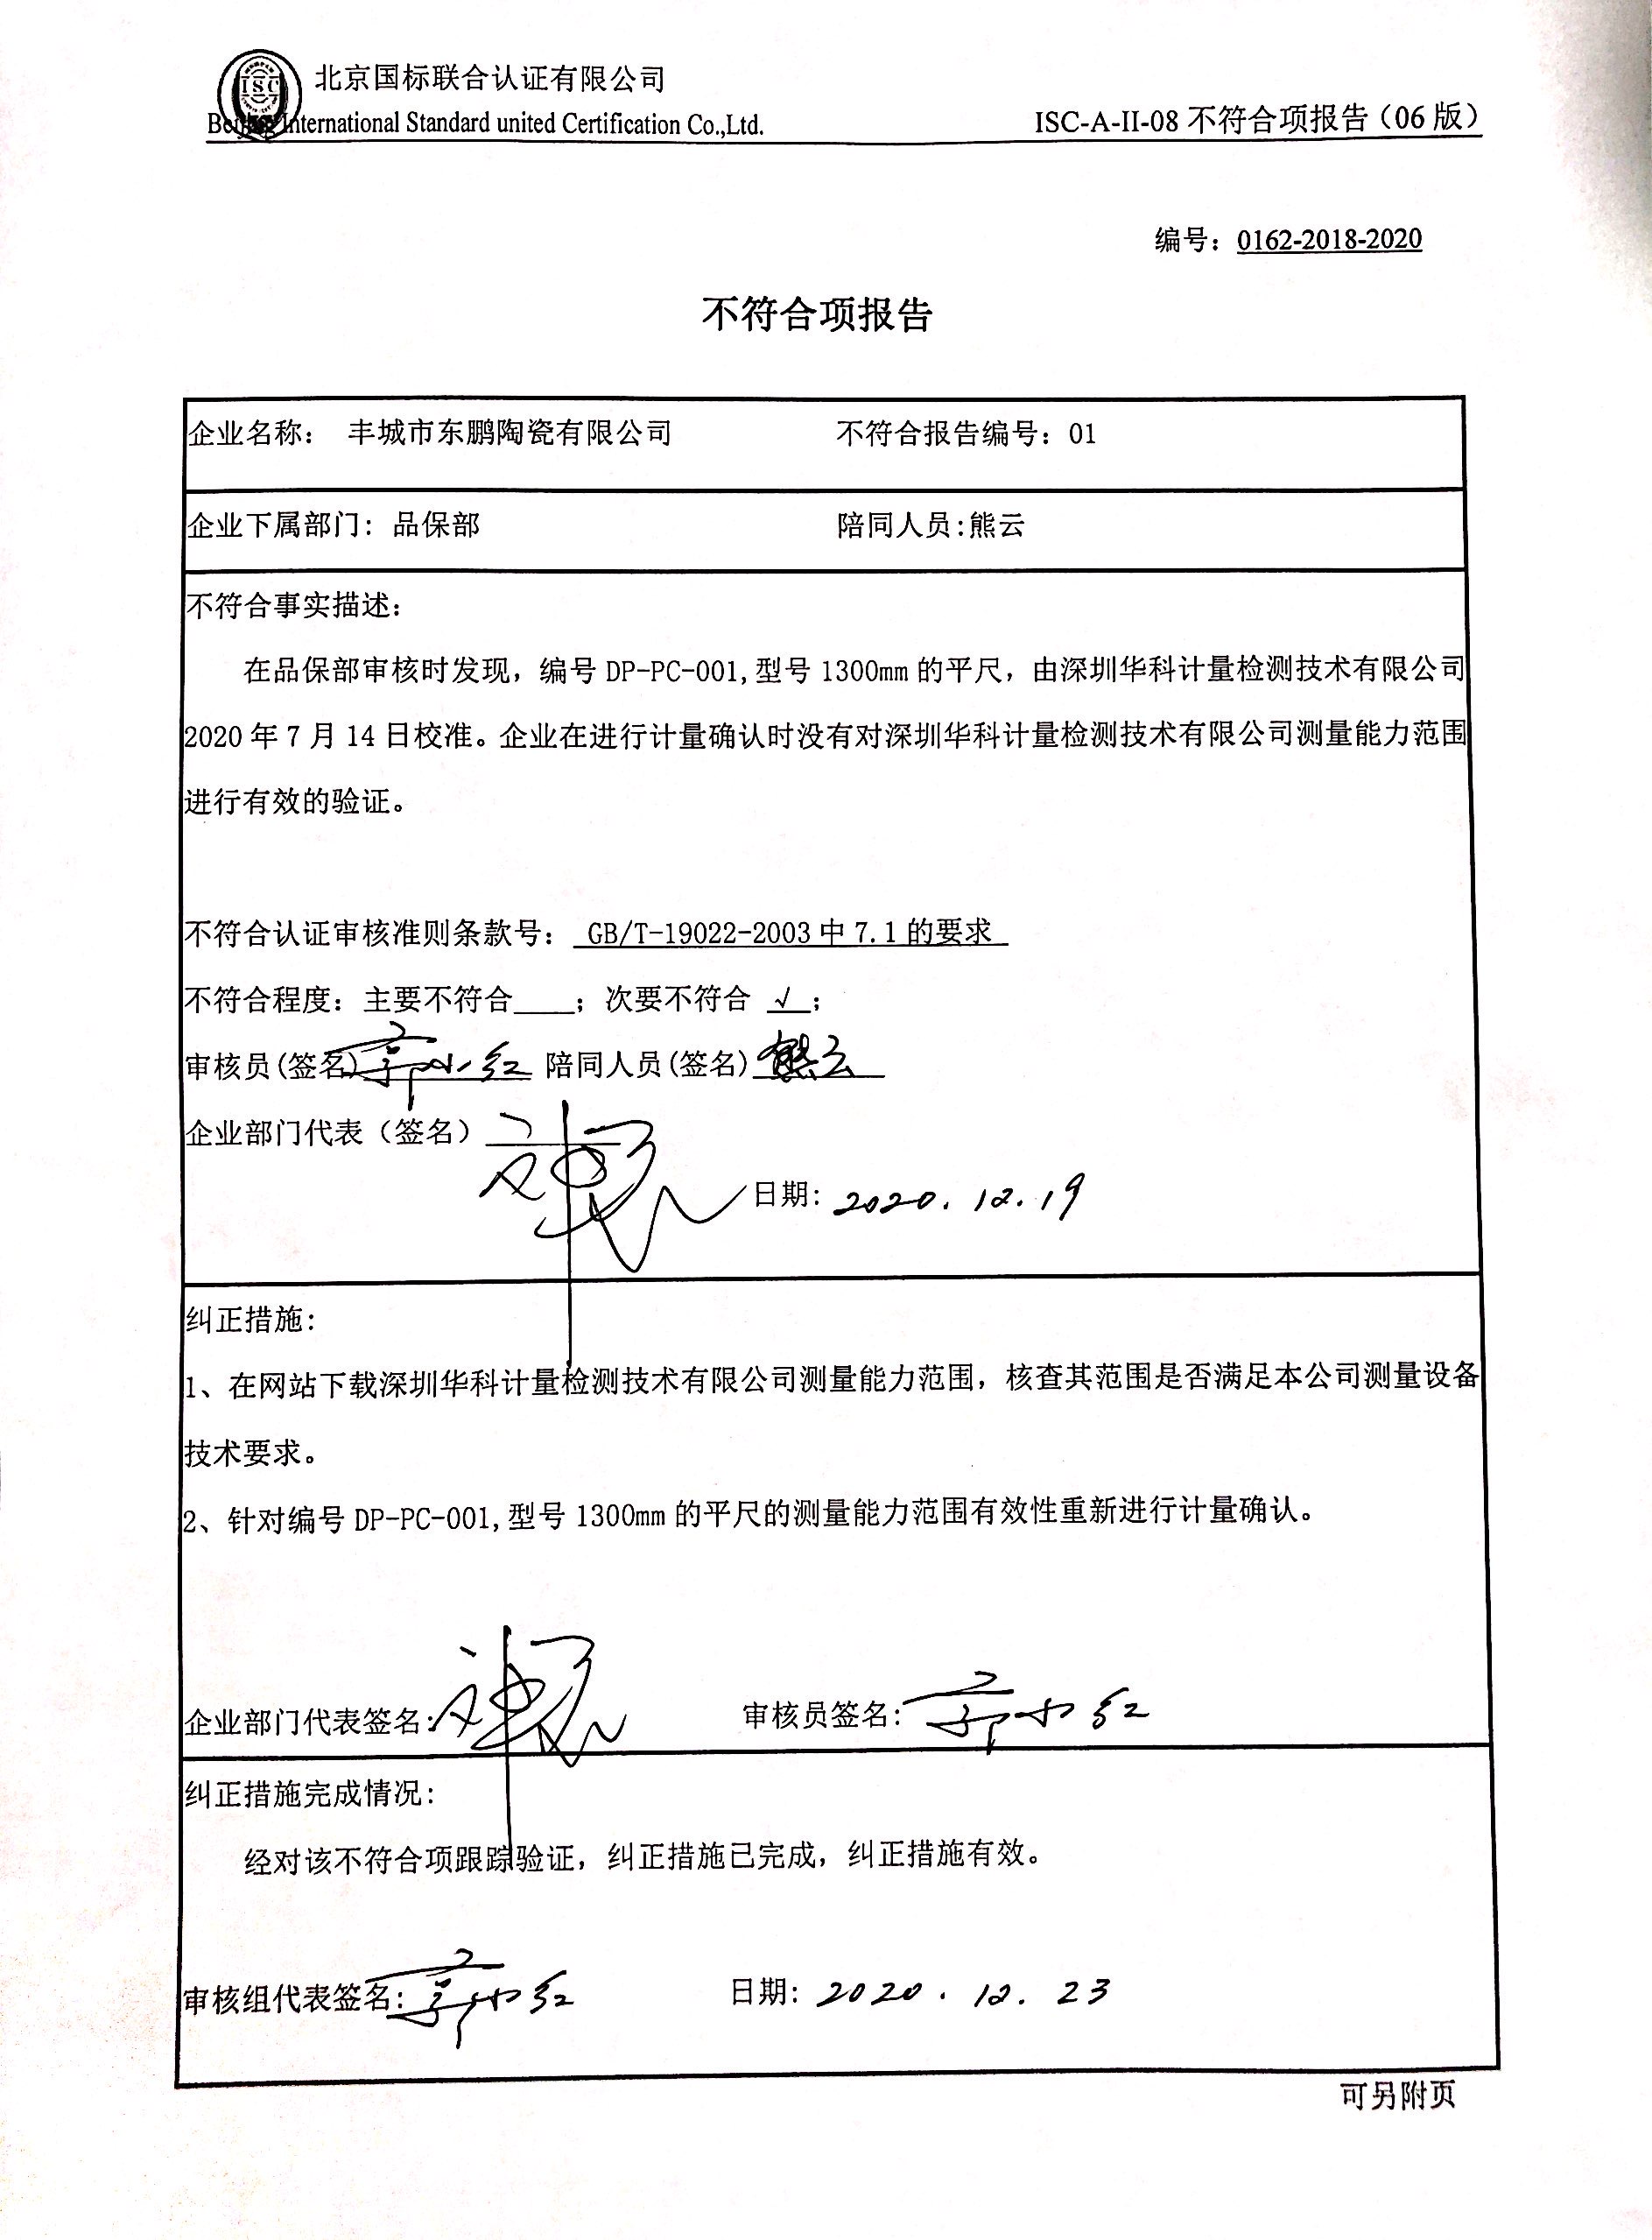 ISC
北京国标联合认证有限公司
Beijing International Standard united Certification Co.,Ltd.
ISC-A-II-08 不符合项报告（06 版）
编号：0162-2018-2020
不符合项报告
企业名称： 丰城市东鹏陶瓷有限公司 不符合报告编号：01
企业下属部门：品保部 陪同人员:熊云
不符合事实描述：
在品保部审核时发现，编号 DP-PC-001,型号 1300mm 的平尺，由深圳华科计量检测技术有限公司
2020 年 7 月 14 日校准。企业在进行计量确认时没有对深圳华科计量检测技术有限公司测量能力范围
进行有效的验证。
不符合认证审核准则条款号： GB/T-19022-2003 中 7.1 的要求
不符合程度：主要不符合____；次要不符合 √；
审核员(签名) 陪同人员(签名) 熊云
企业部门代表（签名）
日期: 2020.12.19
纠正措施:
1、在网站下载深圳华科计量检测技术有限公司测量能力范围，核查其范围是否满足本公司测量设备
技术要求。
2、针对编号 DP-PC-001,型号 1300mm 的平尺的测量能力范围有效性重新进行计量确认。
企业部门代表签名: 审核员签名:
纠正措施完成情况：
经对该不符合项跟踪验证，纠正措施已完成，纠正措施有效。
审核组代表签名: 日期: 2020.12.23
可另附页